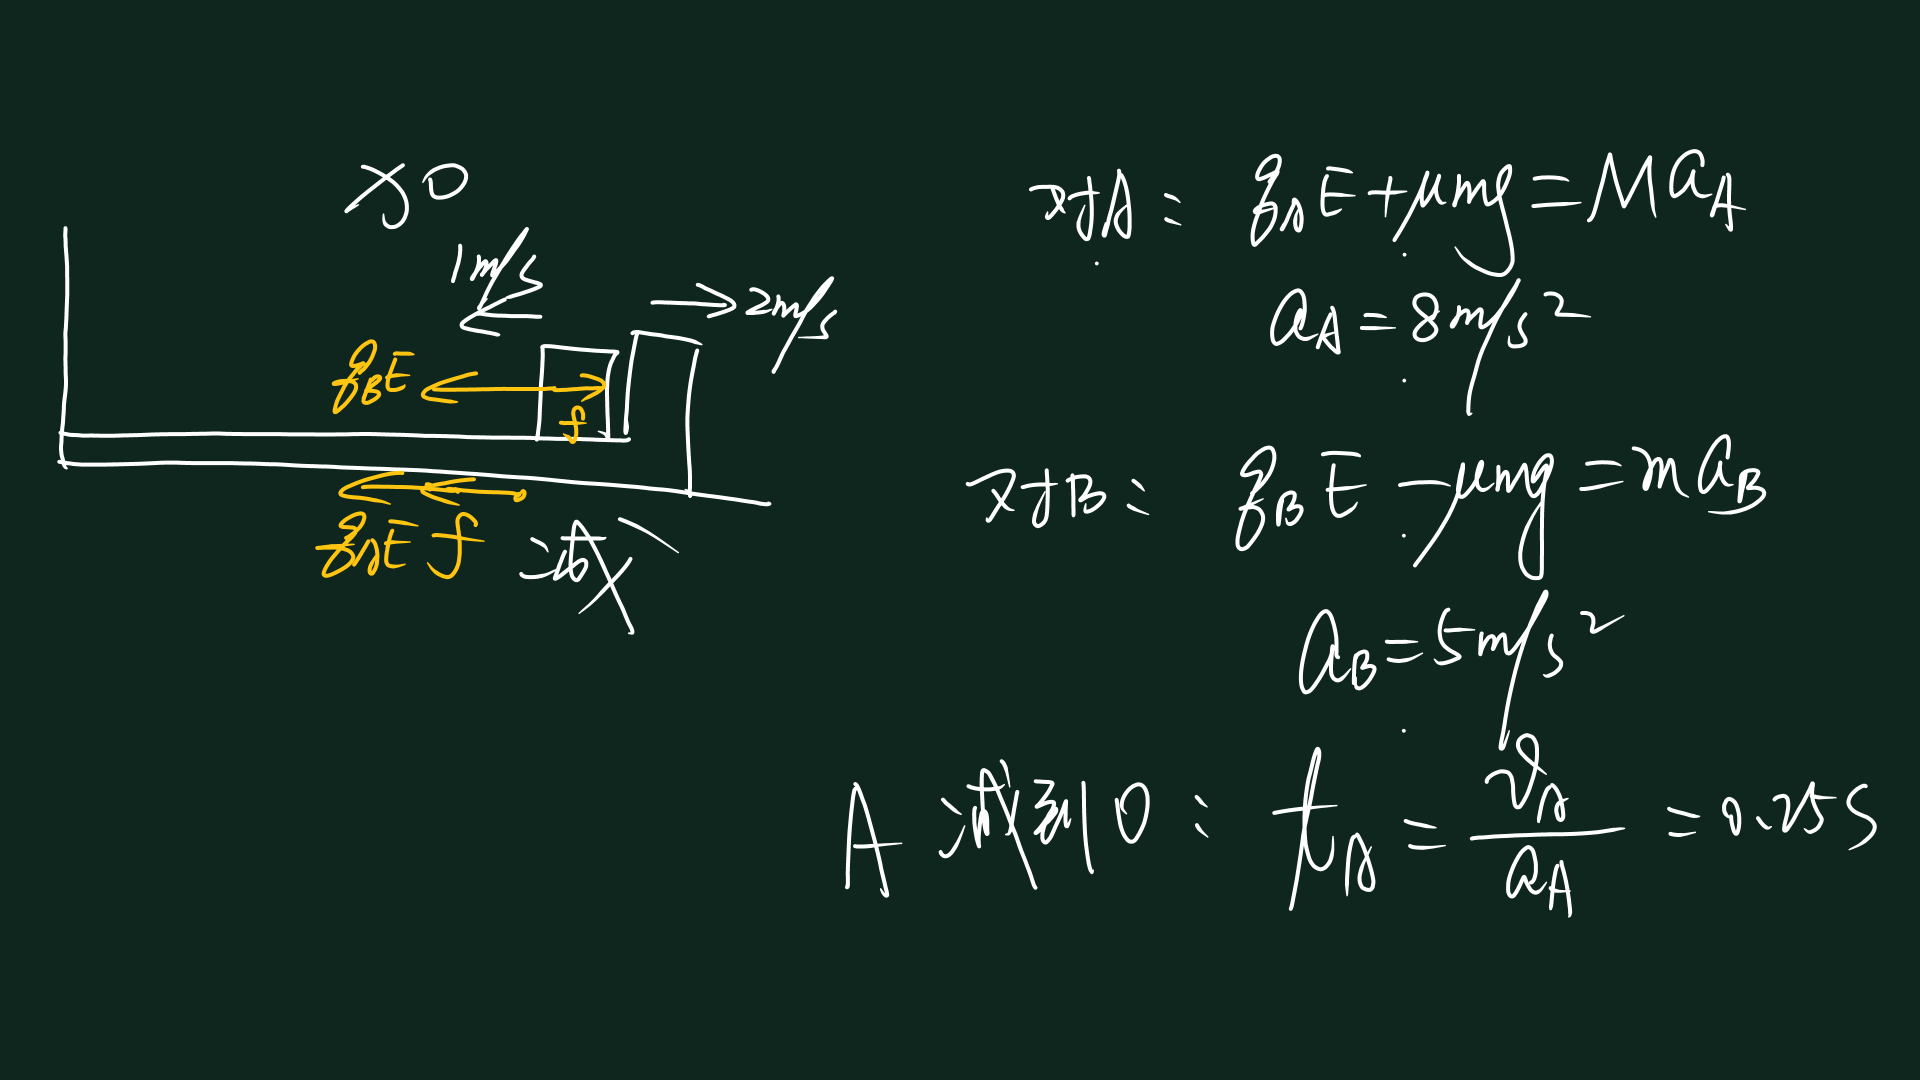 1m/s
2m/s
q_BE
f
q_AE f
减
对A: q_AE+μmg=Ma_A
a_A=8m/s²
对B: q_BE-μmg=ma_B
a_B=5m/s²
A减到0: t_A=v_A/a_A=0.25s